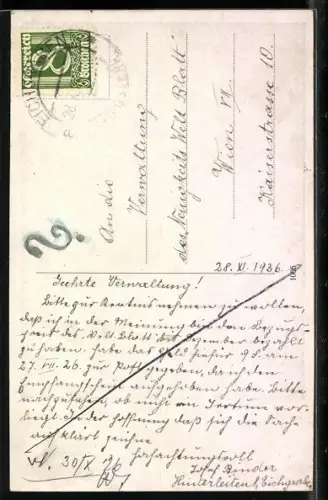 Österreich
8
Groschen
EICH
An die
Verwaltung
des Neuigkeits Welt Blatt
Wien VII.
Kaiserstrasse 10.
2.
28. XI. 1926.
Geehrte Verwaltung!
Bitte zur Kentnis nehmen zu wollen,
daß ich in der Meinung bin den Bezugs-
preis des Welt Blatt bis Dezember bezahlt
zu haben. habe das Geld hiefür 9 S. am
27. VII. 26. zur Post gegeben, da ich den
Empfangschein aufgehoben habe. Bitte
nachzusehen, ob nicht ein Irrtum vor-
liegt. In der Hoffnung daß sich die Sache
aufklärt zeichne
hochachtungsvoll
Josef Binder
Hinterleiten 1, Eichgraben
30/XI 26